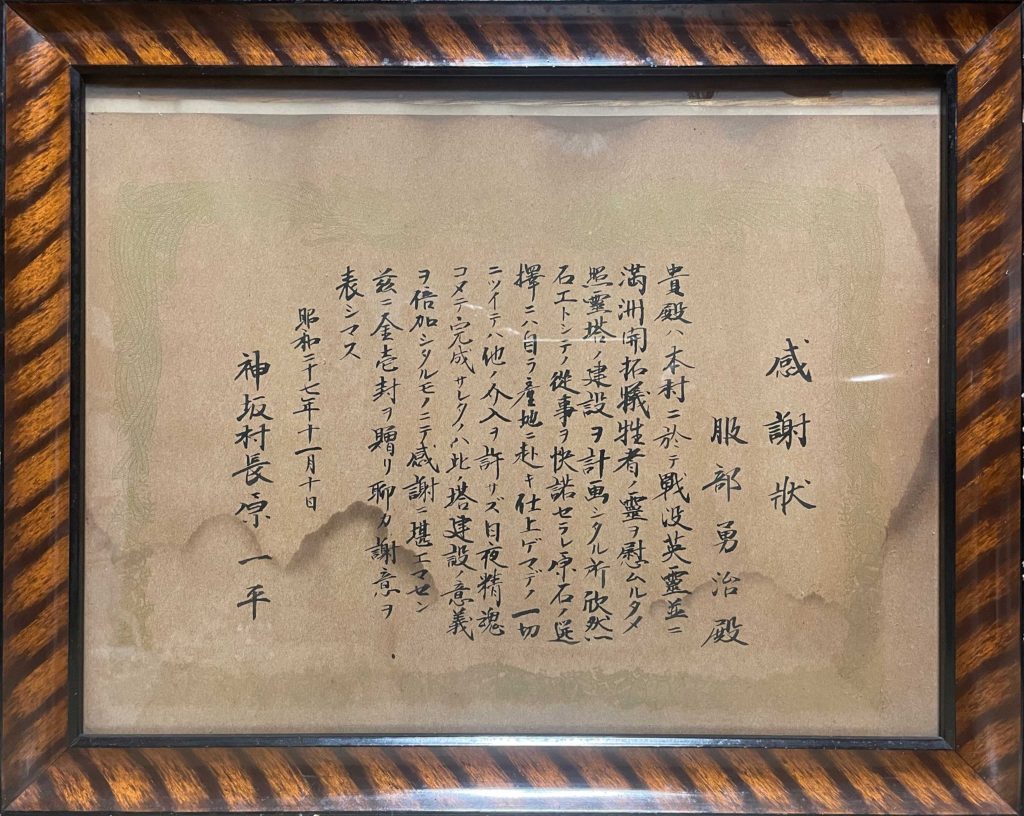 感謝状
服部勇治殿
貴殿ハ本村ニ於テ戦没英霊並ニ
満洲開拓犠牲者ノ靈ヲ慰ムルタメ
照靈塔ノ建設ヲ計画シタル所欣然
石工トシテノ從事ヲ快諾セラレ原石ノ選
擇ニハ自ラ産地ニ赴キ仕上ゲマデノ一切
ニツイテハ他ノ介入ヲ許サズ日夜精魂
コメテ完成サレタノハ此ノ塔建設ノ意義
ヲ倍加シタルモノニテ感謝ニ堪エマセン
茲ニ金壱封ヲ贈リ聊カ謝意ヲ
表シマス
昭和二十七年十一月十日
神坂村長原一平